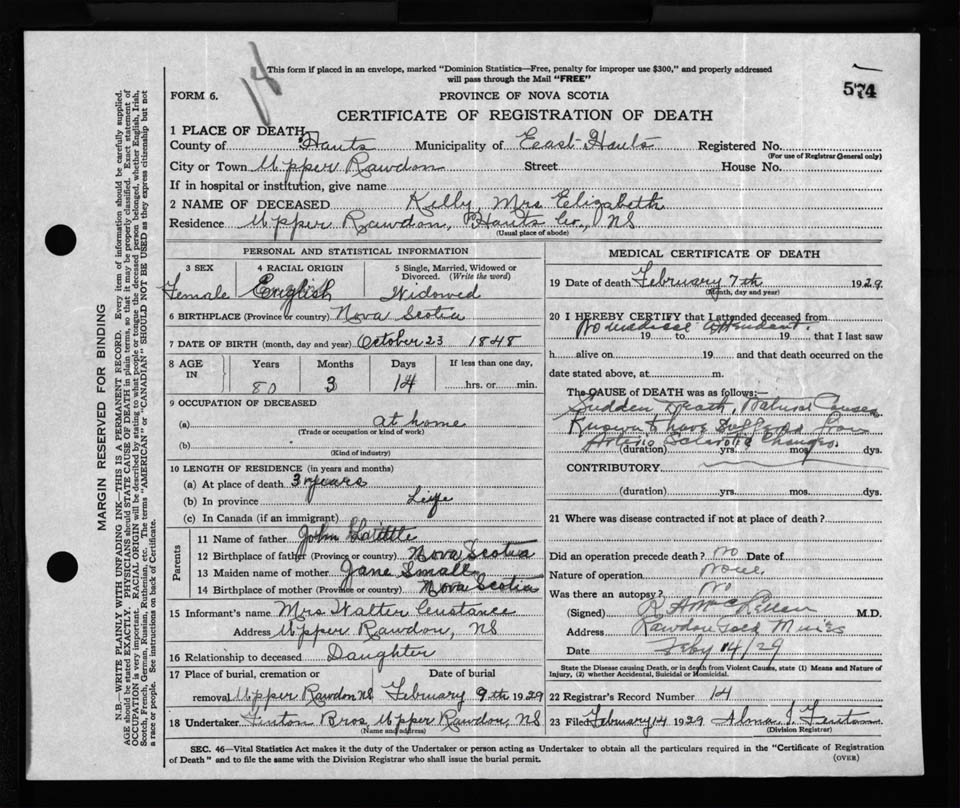 14
This form if placed in an envelope, marked "Dominion Statistics—Free, penalty for improper use $300," and properly addressed
will pass through the Mail "FREE"
574
FORM 6.
PROVINCE OF NOVA SCOTIA
CERTIFICATE OF REGISTRATION OF DEATH
1 PLACE OF DEATH
County of Hants Municipality of East Hants Registered No.
(For use of Registrar General only)
City or Town Upper Rawdon Street House No.
If in hospital or institution, give name
2 NAME OF DECEASED Kelly, Mrs Elizabeth
Residence Upper Rawdon, Hants Co., NS
(Usual place of abode)
PERSONAL AND STATISTICAL INFORMATION
3 SEX 4 RACIAL ORIGIN 5 Single, Married, Widowed or
Divorced. (Write the word)
Female English Widowed
6 BIRTHPLACE (Province or country) Nova Scotia
7 DATE OF BIRTH (month, day and year) October 23 1848
8 AGE IN Years Months Days If less than one day,
80 3 14 hrs. or min.
9 OCCUPATION OF DECEASED
(a) at home
(Trade or occupation or kind of work)
(b)
(Kind of industry)
10 LENGTH OF RESIDENCE (in years and months)
(a) At place of death 3 years
(b) In province Life
(c) In Canada (if an immigrant)
Parents
11 Name of father John
12 Birthplace of father (Province or country) Nova Scotia
13 Maiden name of mother Jane Small
14 Birthplace of mother (Province or country) Nova Scotia
15 Informant's name Mrs Walter Custance
Address Upper Rawdon, NS
16 Relationship to deceased Daughter
17 Place of burial, cremation or Date of burial
removal Upper Rawdon NS February 9th 1929
18 Undertaker Fenton Bros, Upper Rawdon, NS
(Name and address)
MEDICAL CERTIFICATE OF DEATH
19 Date of death February 7th 1929
(Month, day and year)
20 I HEREBY CERTIFY that I attended deceased from
No medical attendant.
19 to 19 that I last saw
h alive on 19 and that death occurred on the
date stated above, at m.
The CAUSE OF DEATH was as follows:
Sudden Death, Natural Causes
Known to have suffered from
Arterio Sclerotic Changes.
(duration) yrs. mos. dys.
CONTRIBUTORY
(duration) yrs. mos. dys.
21 Where was disease contracted if not at place of death?
Did an operation precede death? No Date of
Nature of operation None.
Was there an autopsy? No
(Signed) M.D.
Address Rawdon Gold Mines
Date Feby 14/29
State the Disease causing Death, or in death from Violent Causes, state (1) Means and Nature of
Injury, (2) whether Accidental, Suicidal or Homicidal.
22 Registrar's Record Number 14
23 Filed February 14 1929 Alma J. Fenton
(Division Registrar)
SEC. 46—Vital Statistics Act makes it the duty of the Undertaker or person acting as Undertaker to obtain all the particulars required in the "Certificate of Registration
of Death" and to file the same with the Division Registrar who shall issue the burial permit.
(OVER)
MARGIN RESERVED FOR BINDING
N.B.—WRITE PLAINLY WITH UNFADING INK—THIS IS A PERMANENT RECORD. Every item of information should be carefully supplied.
AGE should be stated EXACTLY. PHYSICIANS should STATE CAUSE OF DEATH in plain terms, so that it may be properly classified. Exact statement of
OCCUPATION is very important. RACIAL ORIGIN will be described by stating to what people or tongue the deceased person belonged, whether English, Irish,
Scotch, French, German, Russian, Ruthenian, etc. The terms "AMERICAN" or "CANADIAN" SHOULD NOT BE USED as they express citizenship but not
a race or people. See instructions on back of Certificate.